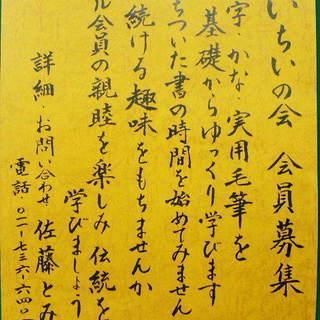 いちいの会 会員募集
字・かな・実用毛筆を
基礎からゆっくり学びます
ちついた書の時間を始めてみません
続ける趣味をもちませんか
ル会員の親睦を楽しみ 伝統を
学びましょう
詳細・お問い合わせ 佐藤とみ
電話・〇一一-七三六-六四〇